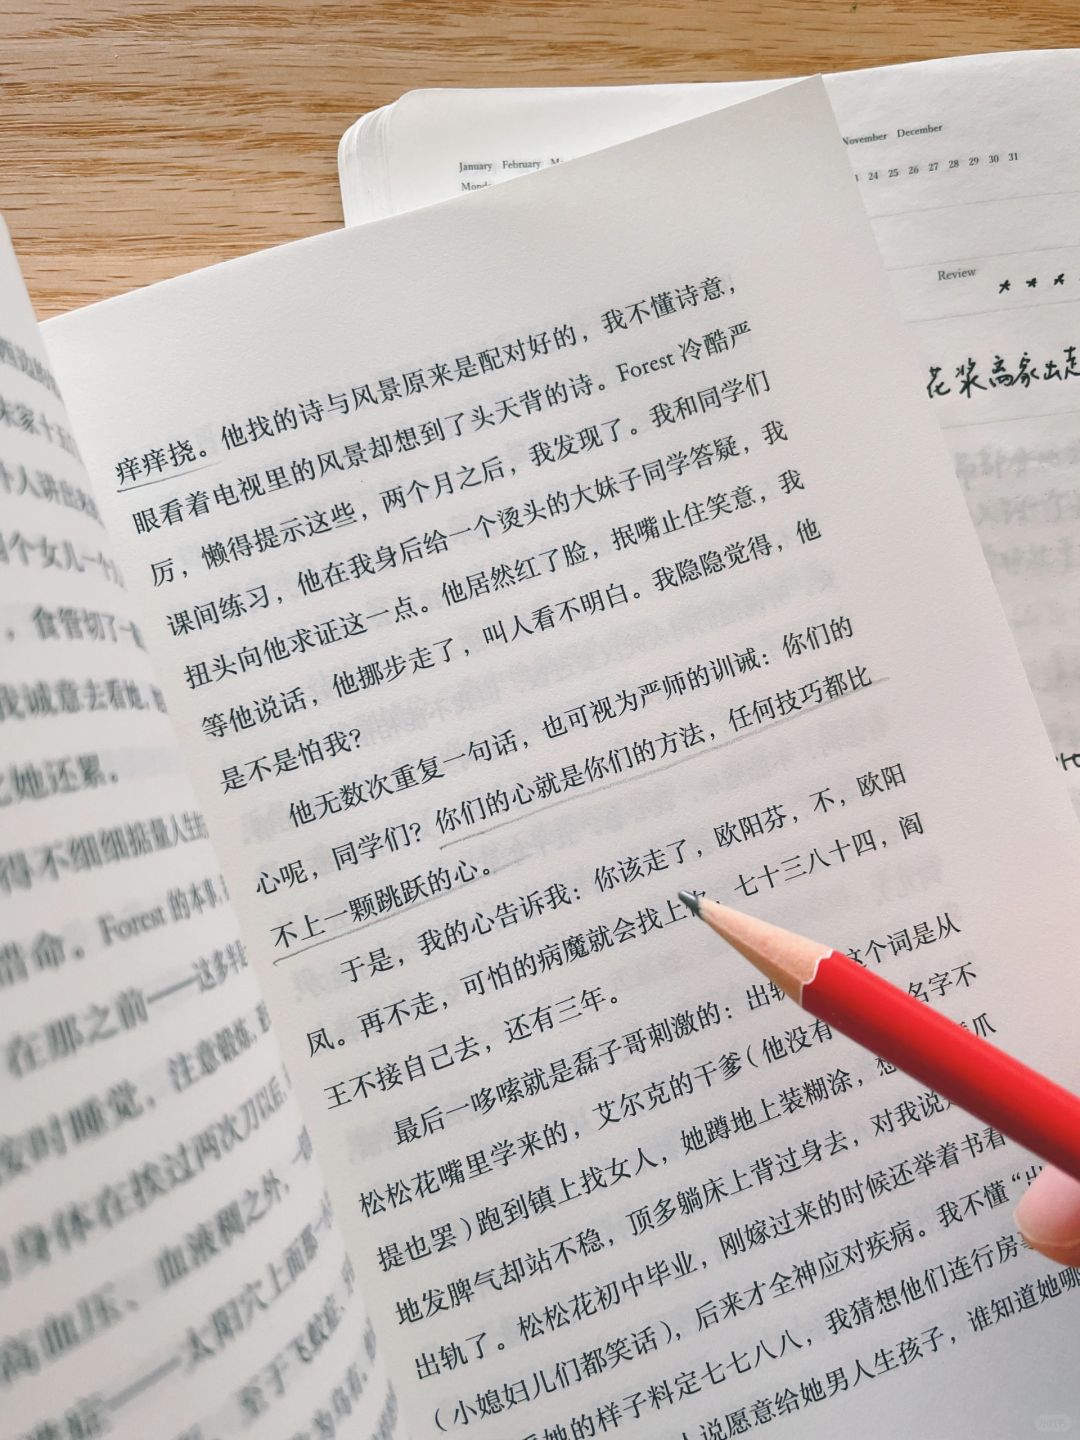 January February
November December
Mond
24 25 26 27 28 29 30 31
Review
花浆离家出走
痒痒挠。他找的诗与风景原来是配对好的，我不懂诗意，
眼看着电视里的风景却想到了头天背的诗。Forest 冷酷严
厉，懒得提示这些，两个月之后，我发现了。我和同学们
课间练习，他在我身后给一个烫头的大妹子同学答疑，我
扭头向他求证这一点。他居然红了脸，抿嘴止住笑意，我
等他说话，他挪步走了，叫人看不明白。我隐隐觉得，他
是不是怕我？
他无数次重复一句话，也可视为严师的训诫：你们的
心呢，同学们？你们的心就是你们的方法，任何技巧都比
不上一颗跳跃的心。
于是，我的心告诉我：你该走了，欧阳芬，不，欧阳
凤。再不走，可怕的病魔就会找上你，七十三八十四，阎
王不接自己去，还有三年。
最后一哆嗦就是磊子哥刺激的：出轨这个词是从
松松花嘴里学来的，艾尔克的干爹（他没有名字不
提也罢）跑到镇上找女人，她蹲地上装糊涂，想爪
地发脾气却站不稳，顶多躺床上背过身去，对我说
出轨了。松松花初中毕业，刚嫁过来的时候还举着书看
（小媳妇儿们都笑话），后来才全神应对疾病。我不懂“出
她的样子料定七七八八，我猜想他们连行房
人说愿意给她男人生孩子，谁知道她哪
外人讲出
四个女儿一个
，食管切了一
我诚意去看她，
之她还累。
得不细细掂量人生
惜命。Forest 的本
在那之前——这多半
按时睡觉，注意锻炼，
身体在挨过两次刀以后，
高血压、血液稠之外，
——太阳穴上面那一
至于飞蚊症，